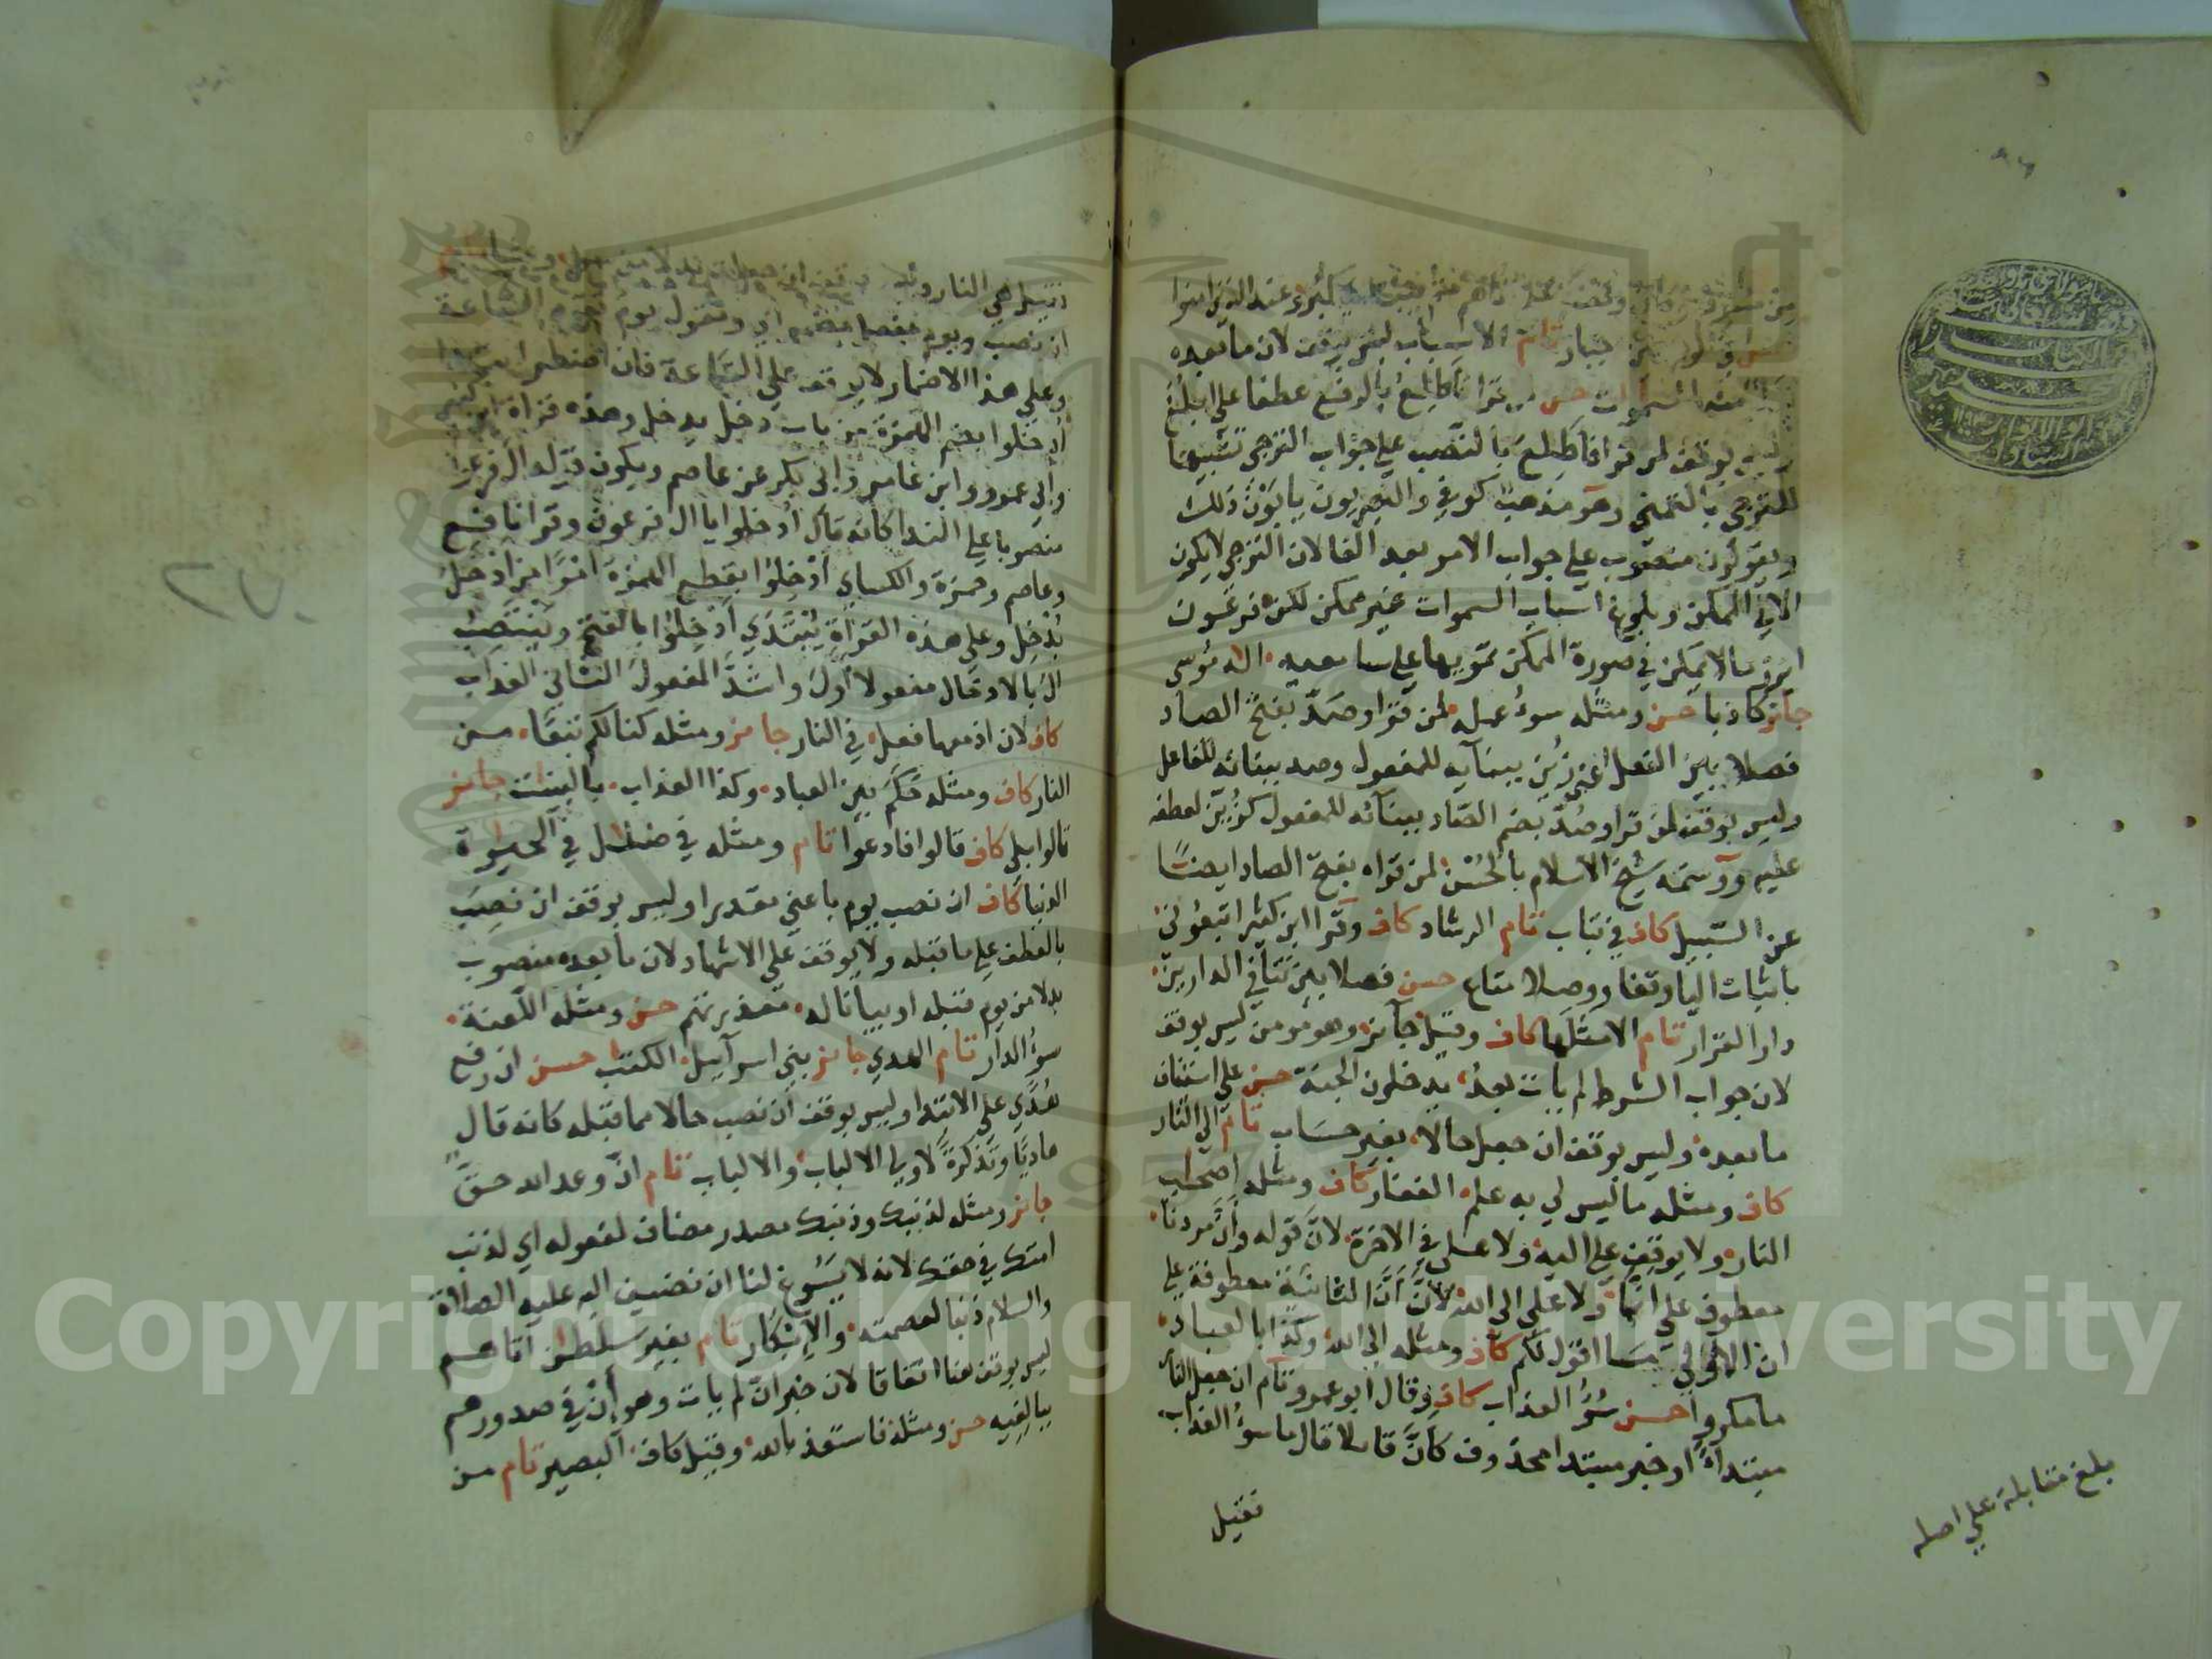 كبر عند الذين امنوا
جبار تام الاسباب ليس بوقف لان ما بعده
السموات حسن لمن قرا فاطلع بالرفع عطفا على ابلغ
وليس بوقف لمن قرا فاطلع بالنصب على جواب الترجي تشبيها
للترجي بالتمني وهو مذهب كوفي والبصريون يابون ذلك
ويقولون منصوب على جواب الامر بعد الفا لان الترجي لا يكون
الا في الممكن وبلوغ اسباب السموات غير ممكن لكن فرعون
ابرز ما لا يمكن في صورة الممكن تمويها على سامعيه اله موسى
جائز كاذبا حسن ومثله سوء عمله لمن قرا وصد بفتح الصاد
فصلا بين الفعل اعني زين ببنائه للمفعول وصد ببنائه للفاعل
وليس بوقف لمن قرا وصد بضم الصاد ببنائه للمفعول كزين لعطفه
عليه ووسمه شيخ الاسلام بالحسن لمن قراه بفتح الصاد ايضا
عن السبيل كاف في تباب تام الرشاد كاف وقرا ابن كثير اتبعوني
باثبات اليا وقفا ووصلا متاع حسن فصلا بين تنافي الدارين
دار القرار تام الا مثلها كاف وقيل جائز وهو مومن ليس بوقف
لان جواب الشرط لم يات بعد يدخلون الجنة حسن على استئناف
ما بعده وليس بوقف ان جعل حالا بغير حساب تام الى النار
كاف ومثله ما ليس لي به علم الغفار كاف ومثله اصحاب
النار ولا يوقف على اليه ولا على في الاخرة لان قوله وان مردنا
معطوف على انما ولا على الى الله لان ان الثانية معطوفة على
ان الاولى ما اقول لكم كاف ومثله الى الله وكذا بالعباد
ما مكروا حسن سوء العذاب كاف وقال ابو عمرو تام ان جعل النار
مبتداء او خبر مبتدا محذوف كان قائلا قال ما سوء العذاب
فقيل
بلغ مقابلة على اصله
فقيل هي النار
ان نصب ويوم بفعل مضمر اي ونقول يوم تقوم الساعة
وعلى هذا الاضمار لا يوقف على الساعة فان اضطر
ادخلوا بضم الهمزة من باب دخل يدخل وهذه قراة ابن كثير
وابي عمرو وابن عامر وابي بكر عن عاصم ويكون قوله ال فرعون
منصوبا على الندا كانه قال ادخلوا يا ال فرعون وقرا نافع
وعاصم وحمزة والكساي ادخلوا بقطع الهمزة امرا من ادخل
يدخل وعلى هذه القراة يبتدي ادخلوا بالفتح وينتصب
ال بالادخال مفعولا اول واشد المفعول الثاني العذاب
كاف لان اذ معها فعل في النار جائز ومثله كنا لكم تبعا من
النار كاف ومثله حكم بين العباد وكذا العذاب بالبينت جائز
قالوا بلى كاف قالوا فادعوا تام ومثله في ضلل في الحيوة
الدنيا كاف ان نصب يوم باعني مقدرا وليس بوقف ان نصب
بالعطف على ما قبله ولا يوقف على الاشهاد لان ما بعده منصوب
بدلا من يوم قبله او بيانا له معذرتهم حسن ومثله اللعنة
سوء الدار تام الهدي جائز بني اسرائيل الكتب حسن ان رفع
هدي على الابتدا وليس بوقف ان نصب حالا مما قبله كانه قال
هاديا وتذكرة لاولي الالباب والالباب تام ان وعد الله حق
جائز ومثله لذنبك وذنبك مصدر مضاف لمفعوله اي لذنب
امتك في حقك لانه لا يسوغ لنا ان نضيف اليه عليه الصلاة
والسلام ذنبا لعصمته والابكار تام بغير سلطن اتاهم
ليس بوقف هنا اتفاقا لان خبر ان لم يات وهو ان في صدورهم
ببالغيه حسن ومثله فاستعذ بالله وقيل كاف البصير تام من
Copyright © King Saud University
1957